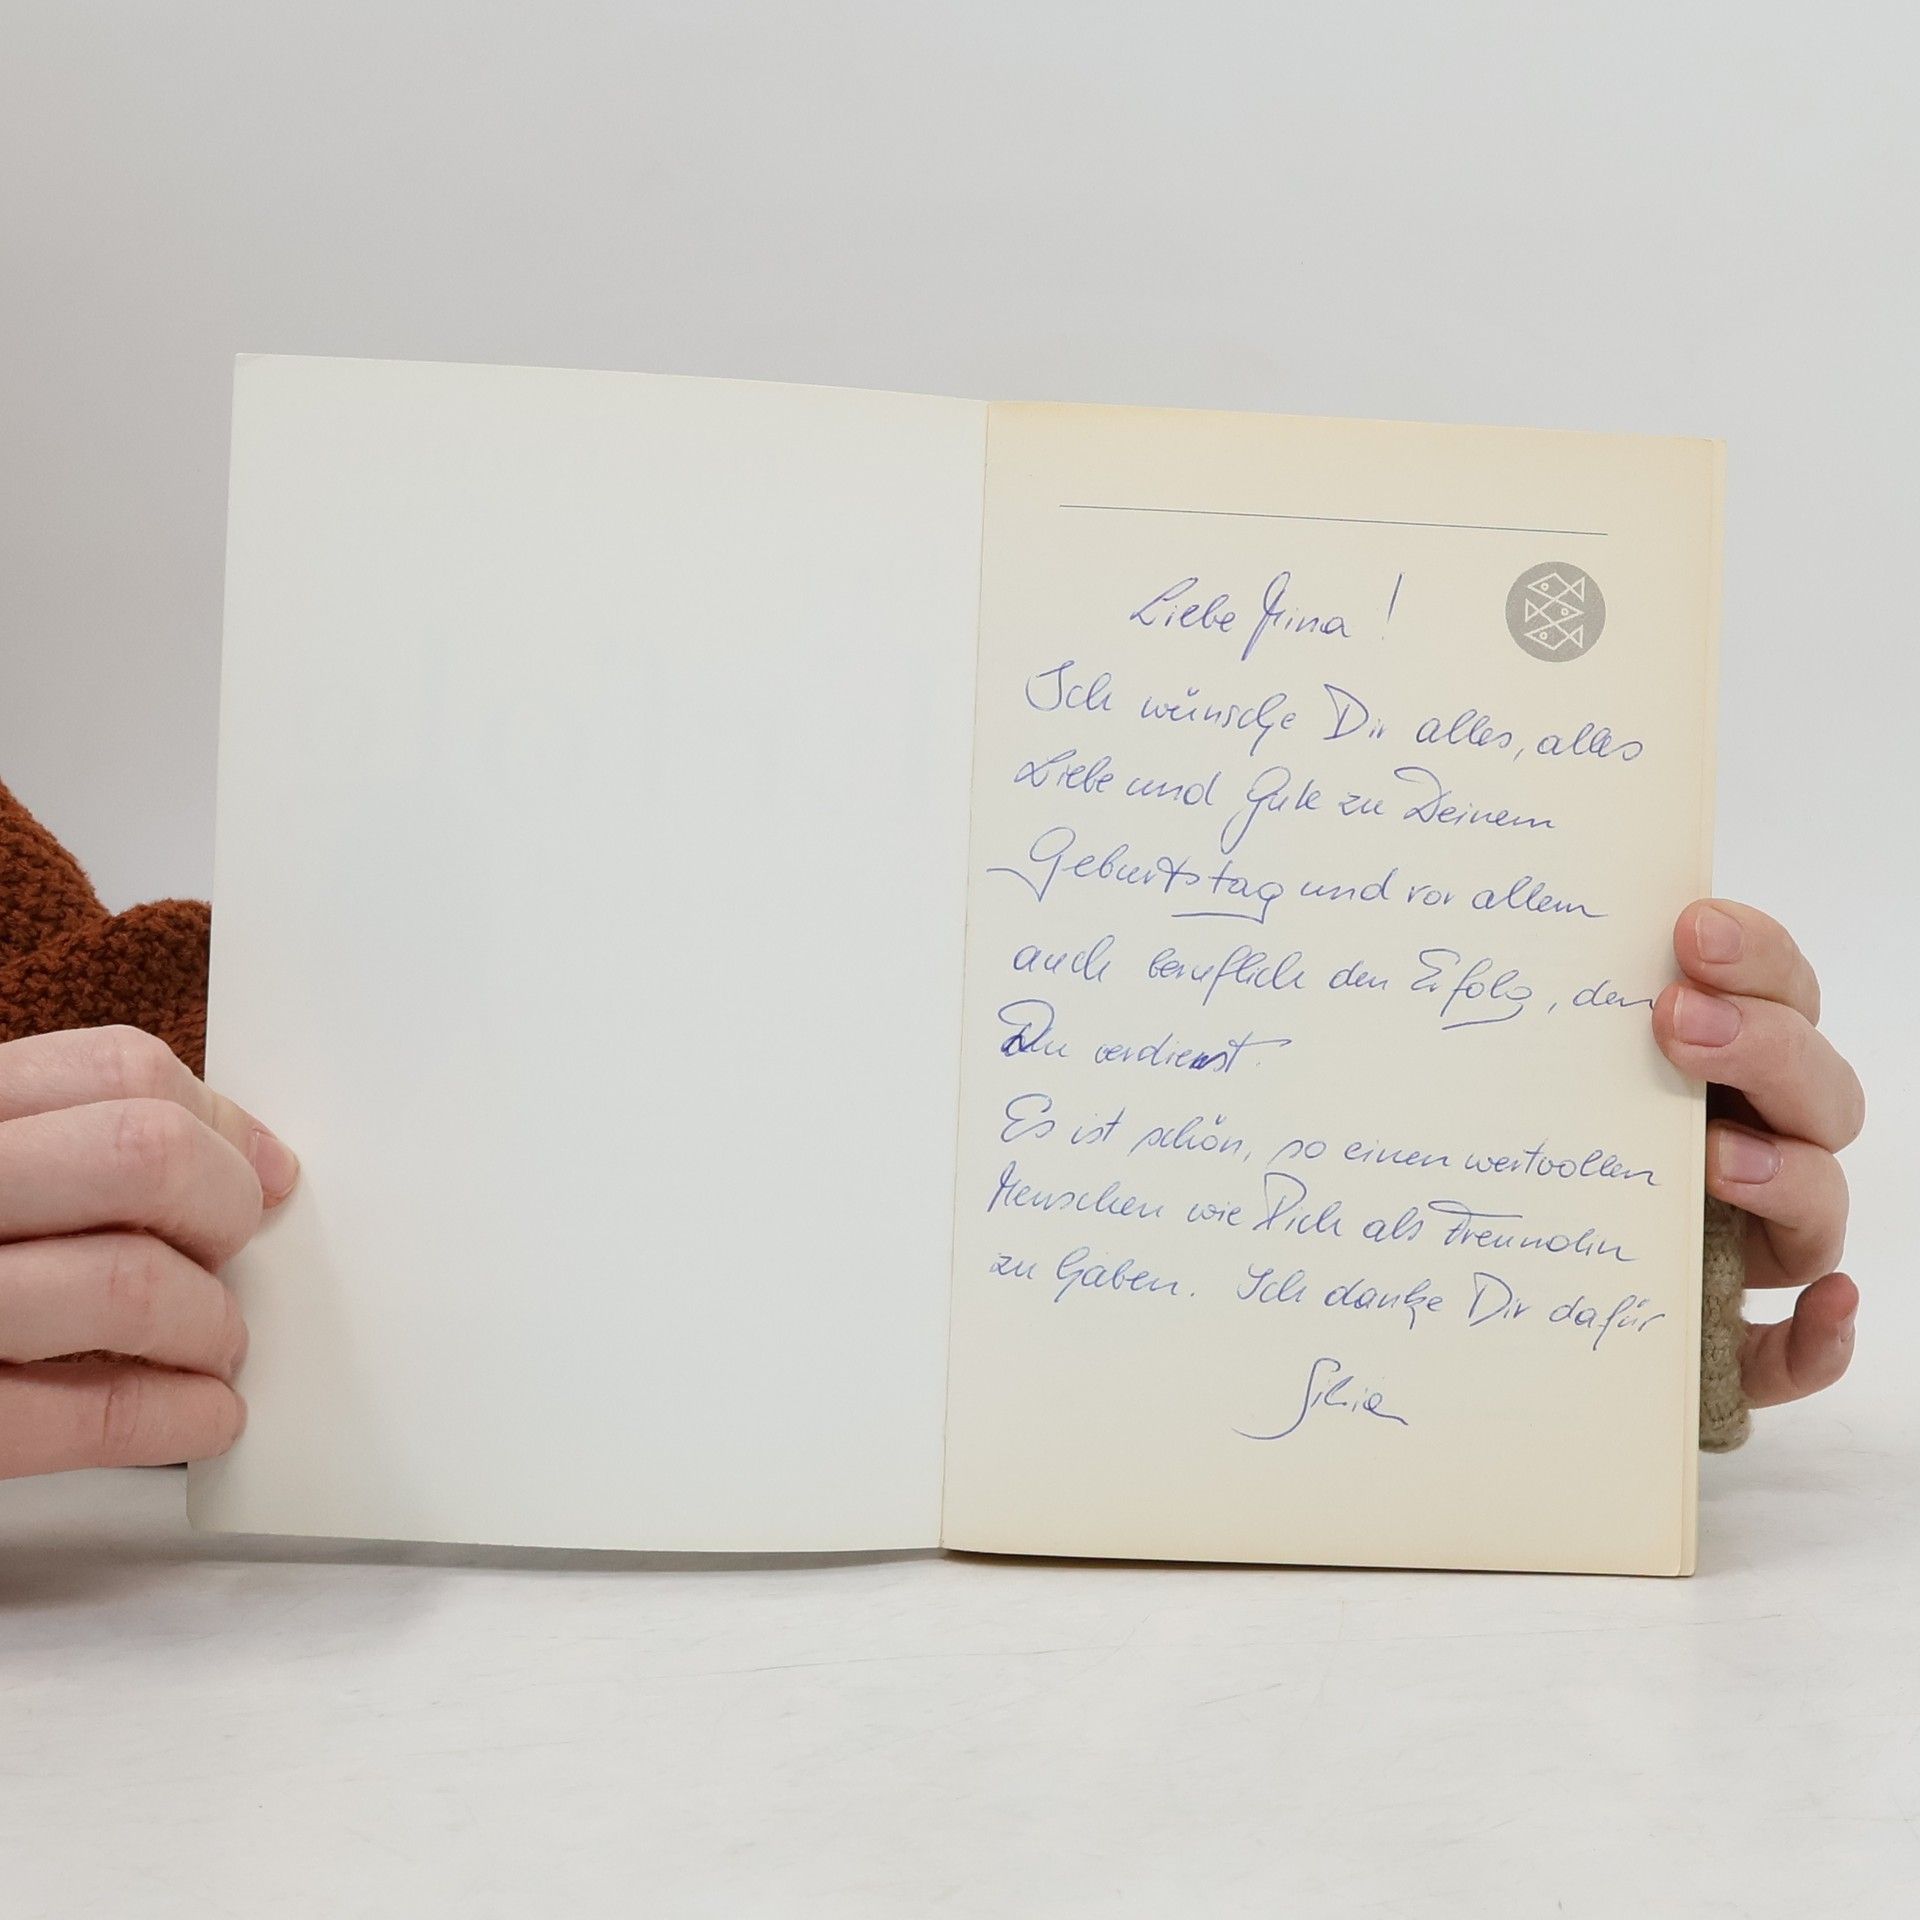 Liebe Mina!
Ich wünsche Dir alles, alles
Liebe und Gute zu Deinem
Geburtstag und vor allem
auch beruflich den Erfolg, den
Du verdienst.
Es ist schön, so einen wertvollen
Menschen wie Dich als Freundin
zu haben. Ich danke Dir dafür
Silvia